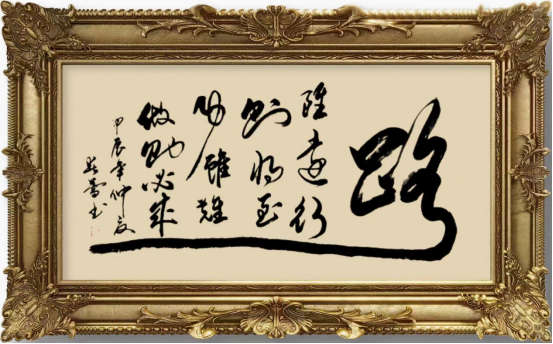 路
雖遠行
則將至
事雖難
做則必成
甲辰年仲夏
書